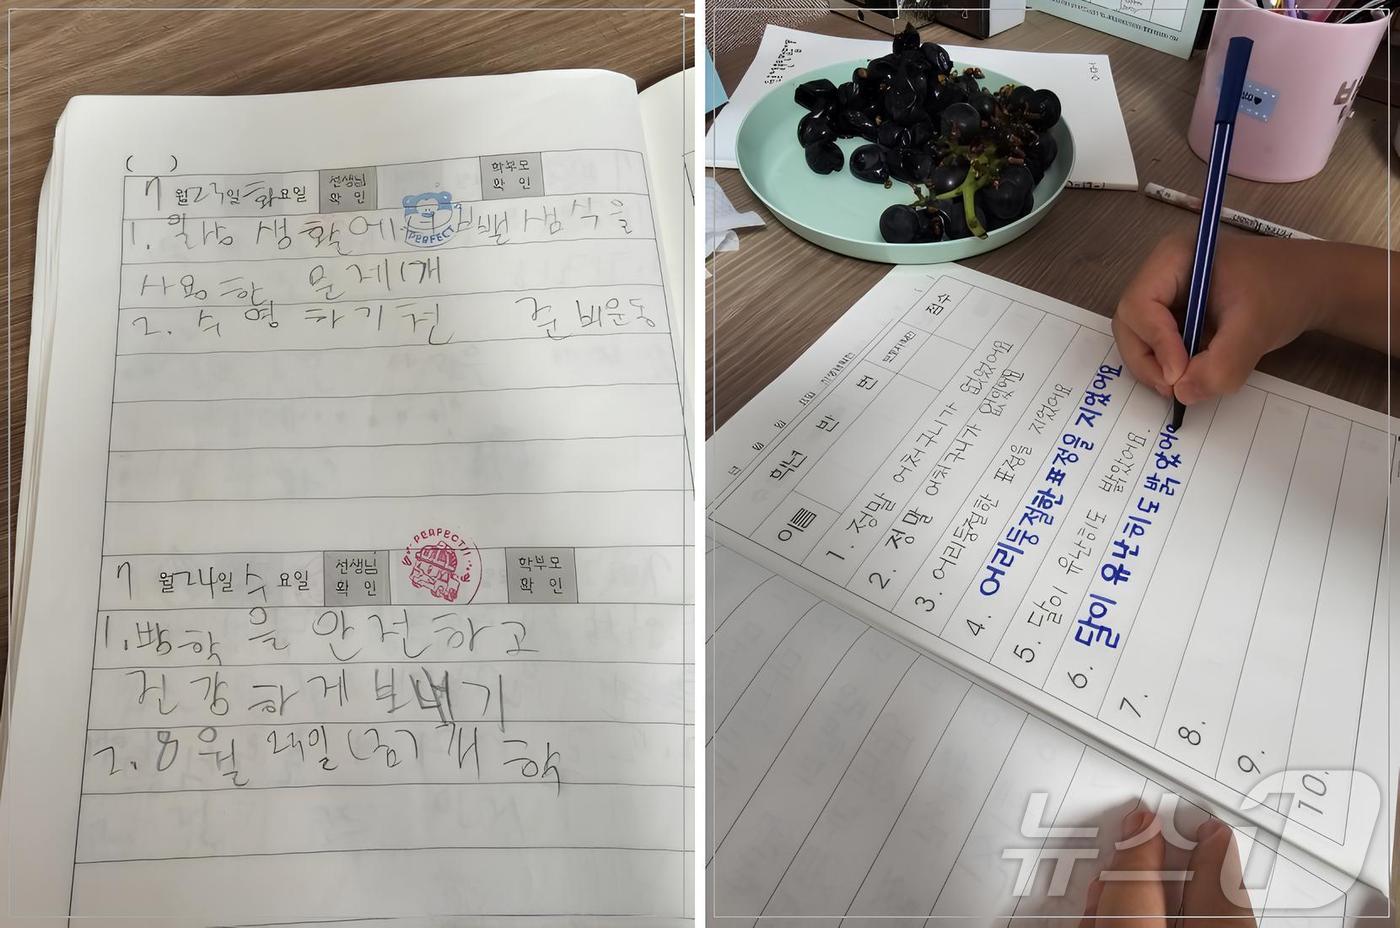 ( )
7 월 23일 화요일 선생님 확 인 학부모 확 인
PERFECT
1. 생활에서 덧뺄셈식을
사용한 문제 1개
2. 수영 하기 전 준비운동
7 월 24일 수 요일 선생님 확 인 학부모 확 인
PERFECT!!
1. 방학을 안전하고
건강하게 보내기
2. 8월 23일 (금) 개학
점수
학년 반 번
이름
1. 정말 어처구니가 없었어요
2. 정말 어처구니가 없었어요
3. 어리둥절한 표정을 지었어요
4. 어리둥절한 표정을 지었어요
5. 달이 유난히도 밝았어요.
6. 달이 유난히도 밝았어
7.
8.
9.
10.
뉴스1